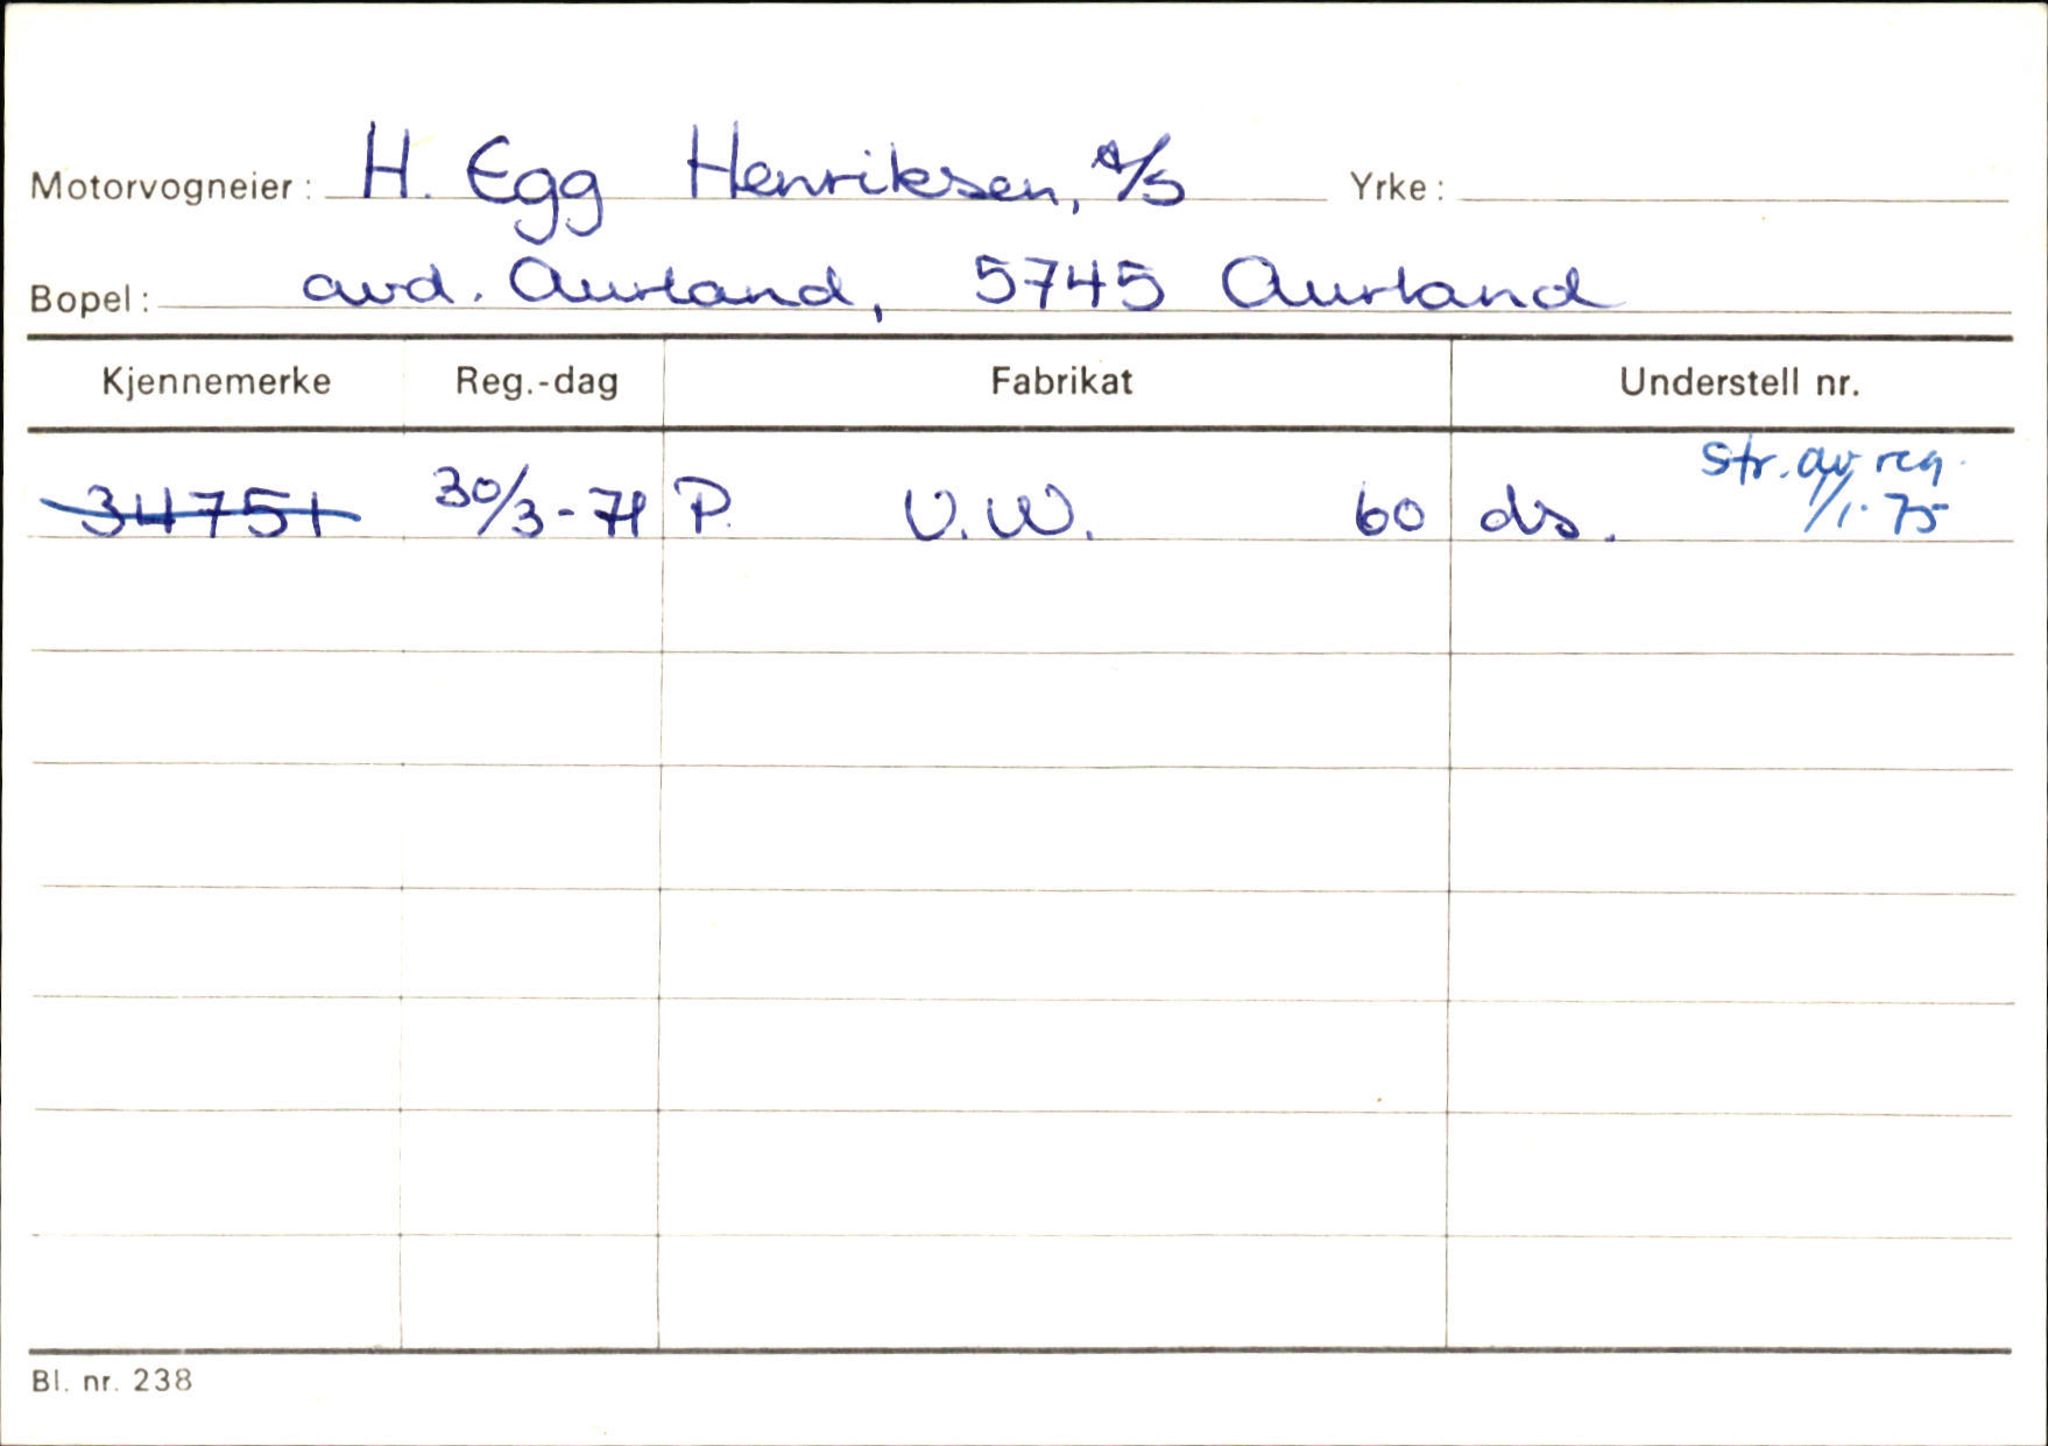 Motorvogneier: H. Egg Henriksen, A/S Yrke:
Bopel: avd. Aurland, 5745 Aurland
Kjennemerke Reg.-dag Fabrikat Understell nr.
str. av reg.
34751 30/3-71 P. V.W. 60 ds. 1/1.75
Bl. nr. 238